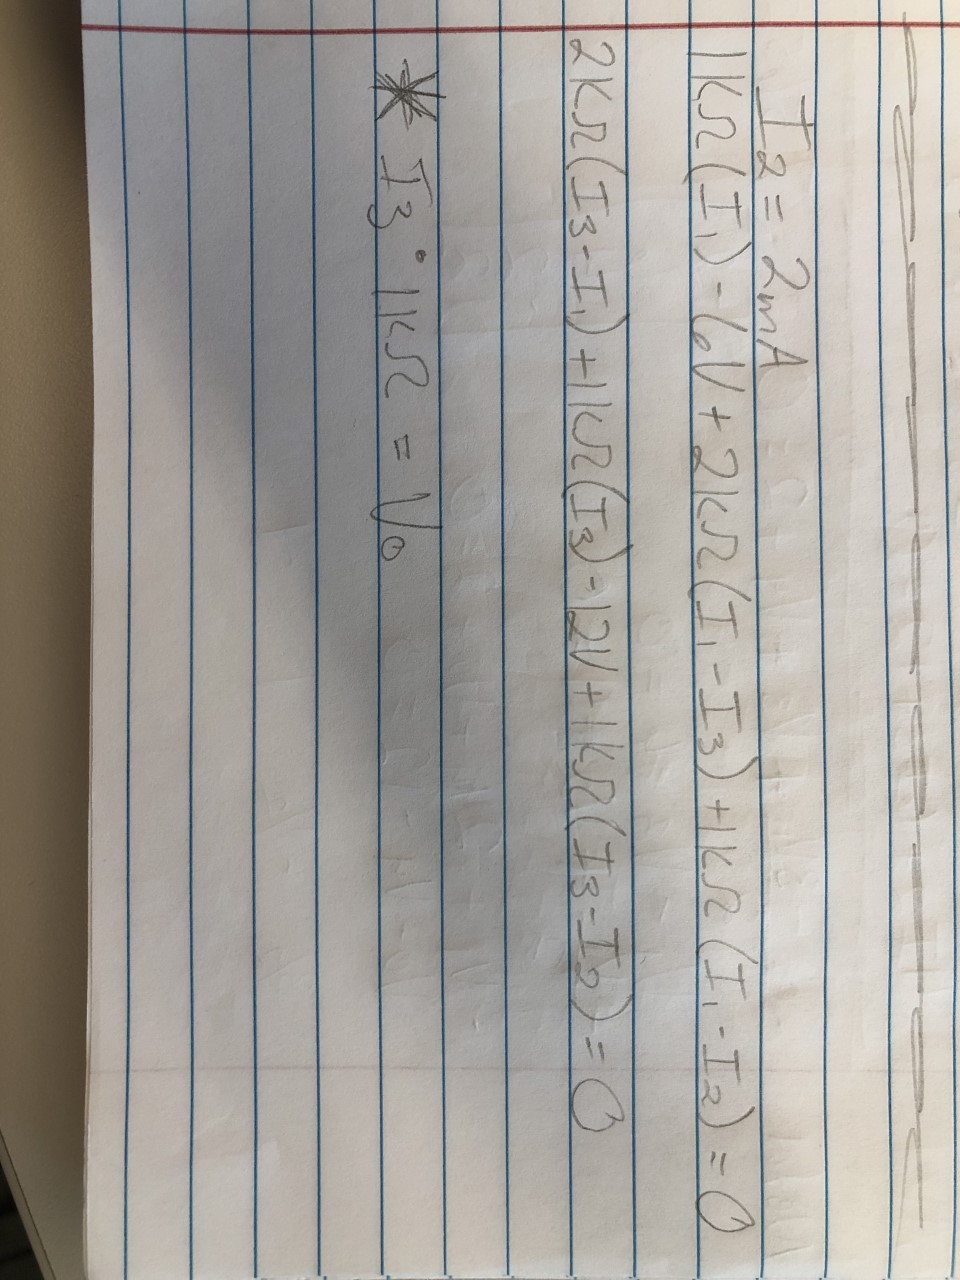 I₂ = 2mA
1kΩ(I₁) - 6V + 2kΩ(I₁ - I₃) + 1kΩ(I₁ - I₂) = 0
2kΩ(I₃ - I₁) + 1kΩ(I₃) - 12V + 1kΩ(I₃ - I₂) = 0
* I₃ · 1kΩ = V₀